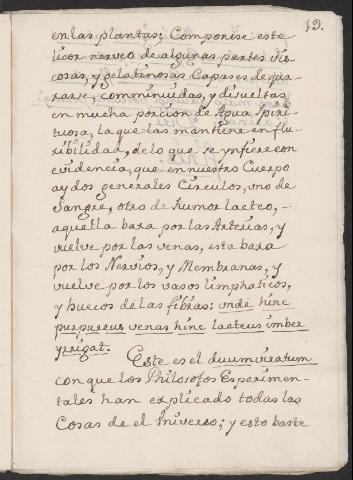 12.
en las plantas; Componese este
licor nerveo de algunas partes vis
cosas, y gelatinosas Capases de qua
xarse, comminuidas, y disueltas
en mucha porcion de Agua Spiri-
tuosa, la que las mantiene en flu-
xibilidad, de lo que se ynfiere con
evidencia, que en nuestro Cuerpo
ay dos generales Circulos, vno de
Sangre, otro de humor lacteo, -
aquella baxa por las Arterias, y
vuelve por las venas, esta baxa
por los Nervios, y Membranas, y
vuelve por los vasos limphaticos,
y huecos de las fibras: vndè hinc
purpureus venas hinc lacteus imber
yrrigat.
Este es el duumviratum
con que los Philosofos Experimen-
tales han explicado todas las
Cosas de el Vniverso; y esto baste